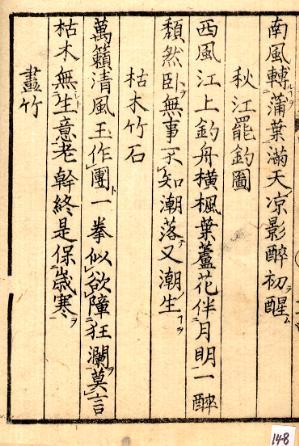 南風轉蒲葉滿天凉影醉初醒
秋江罷釣圖
西風江上釣舟橫楓葉蘆花伴月明一醉
頽然卧無事不知潮落又潮生
枯木竹石
萬籟清風玉作團一拳似欲障狂瀾莫言
枯木無生意老幹終是保歲寒
畫竹
148